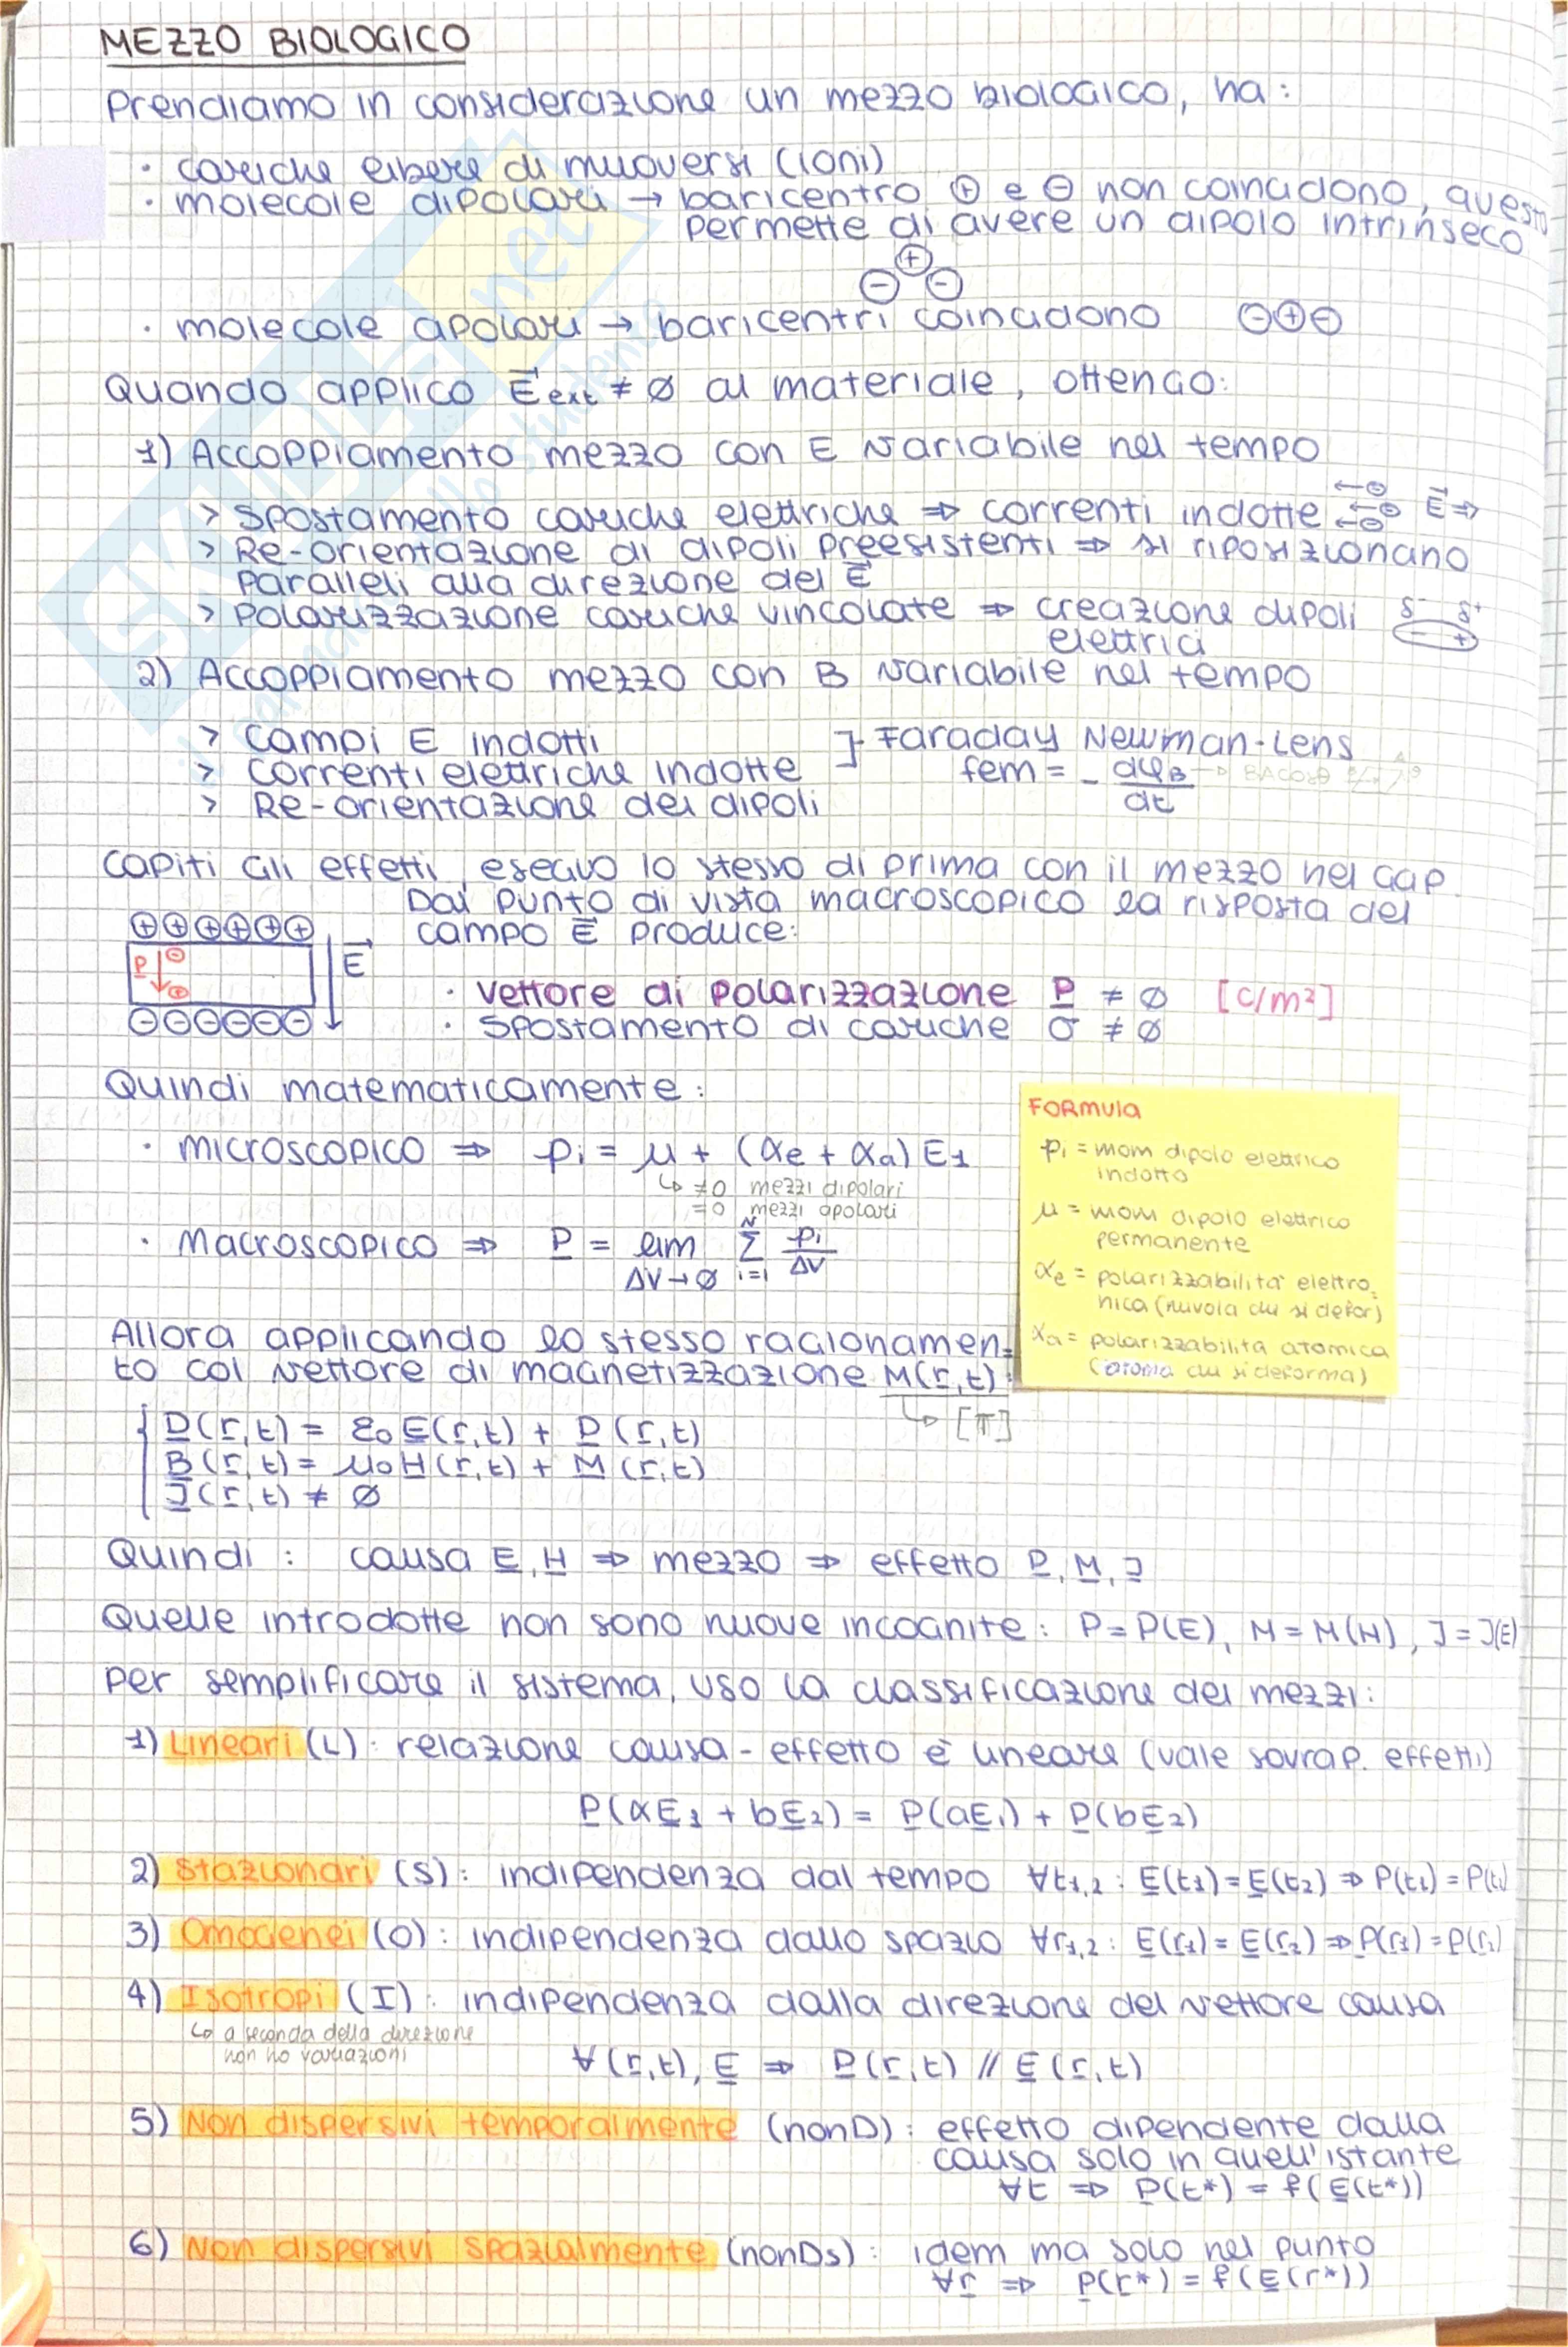 MEZZO BIOLOGICO
Prendiamo in considerazione un mezzo biologico, ha:
· cariche libere di muoversi (ioni)
· molecole dipolari → baricentro ⊕ e ⊖ non coincidono, questo
permette di avere un dipolo intrinseco
⊕
⊖ ⊖
· molecole apolari → baricentri coincidono ⊖⊕⊖
Quando applico E⃗ext ≠ ∅ al materiale, ottengo:
1) Accoppiamento mezzo con E variabile nel tempo
> Spostamento cariche elettriche ⇒ correnti indotte ←⊖ ←⊖ ←⊖ E⃗ ⇒
> Re-orientazione di dipoli preesistenti ⇒ si riposizionano
paralleli alla direzione del E⃗
> Polarizzazione cariche vincolate ⇒ creazione dipoli δ⁻ δ⁺
elettrici - +
2) Accoppiamento mezzo con B variabile nel tempo
> campi E indotti ] Faraday Newman-Lens
> correnti elettriche indotte fem = - dφB/dt → BAcosθ
> Re-orientazione dei dipoli
Capiti gli effetti, eseguo lo stesso di prima con il mezzo nel gap.
Dal punto di vista macroscopico la risposta del
⊕⊕⊕⊕⊕⊕ campo E⃗ produce:
P ⊖ ⊕ E⃗
· vettore di polarizzazione P ≠ ∅ [C/m²]
⊖⊖⊖⊖⊖⊖ · Spostamento di cariche σ ≠ ∅
Quindi matematicamente:
· microscopico ⇒ pi = μ + (αe + αa) E1
↳ ≠0 mezzi dipolari
=0 mezzi apolari
· Macroscopico ⇒ P = lim ΔV→∅ Σ i=1 N pi/ΔV
FORMULA
pi = mom dipolo elettrico
indotto
μ = mom dipolo elettrico
permanente
αe = polarizzabilità elettro-
nica (nuvola che si defor)
αa = polarizzabilità atomica
(atomo che si deforma)
Allora applicando lo stesso ragionamen-
to col vettore di magnetizzazione M(r,t):
↳ [T]
D(r,t) = ε0 E(r,t) + P(r,t)
B(r,t) = μ0 H(r,t) + M(r,t)
J(r,t) ≠ ∅
Quindi: causa E, H ⇒ mezzo ⇒ effetto P, M, J
Quelle introdotte non sono nuove incognite: P=P(E), M=M(H), J=J(E)
Per semplificare il sistema, uso la classificazione dei mezzi:
1) Lineari (L): relazione causa-effetto è lineare (vale sovrap. effetti)
P(αE1 + bE2) = P(aE1) + P(bE2)
2) Stazionari (S): indipendenza dal tempo ∀t1,2 : E(t1)=E(t2) ⇒ P(t1)=P(t2)
3) Omogenei (O): indipendenza dallo spazio ∀r1,2 : E(r1)=E(r2) ⇒ P(r1)=P(r2)
4) Isotropi (I): indipendenza dalla direzione del vettore causa
↳ a seconda della direzione
non ho variazioni
∀(r,t), E ⇒ P(r,t) // E(r,t)
5) Non dispersivi temporalmente (nonD): effetto dipendente dalla
causa solo in quell'istante
∀t ⇒ P(t*) = f(E(t*))
6) Non dispersivi spazialmente (nonDs): idem ma solo nel punto
∀r ⇒ P(r*) = f(E(r*))
SKUOLA.net